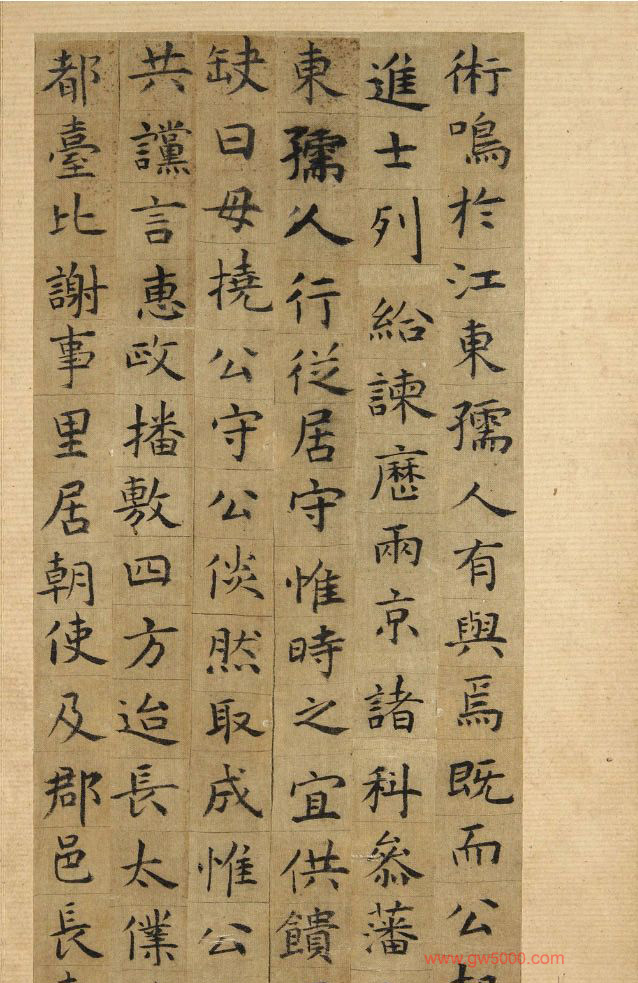 術鳴於江東孺人有與焉既而公
進士列給諫歷兩京諸科叅藩
東孺人行從居守惟時之宜供饋
缺曰毋撓公守公倓然取成惟公
共讜言惠政播敷四方迨長太僕
都臺比謝事里居朝使及郡邑長
www.gw5000.com